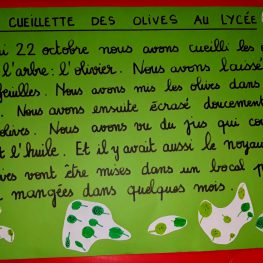 CUEILLETTE DES OLIVES AU LYCÉE
22 octobre nous avons cueilli les
l'arbre : l'olivier. Nous avons laissé
feuilles. Nous avons mis les olives dans
. Nous avons ensuite écrasé doucement
olives. Nous avons vu du jus qui
l'huile. Et il y avait aussi le noyau
vont être mises dans un bocal
mangées dans quelques mois.